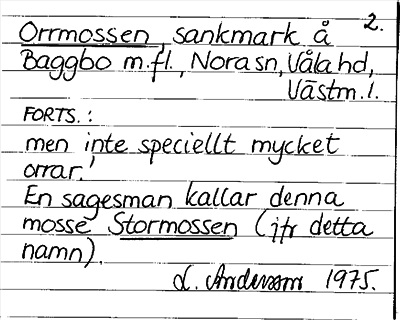 2.
Orrmossen, sankmark å
Baggbo m.fl., Nora sn, Våla hd,
Västm. l.
FORTS.:
men inte speciellt mycket
orrar.'
En sagesman kallar denna
mosse Stormossen (jfr detta
namn).
L. Andersson 1975.